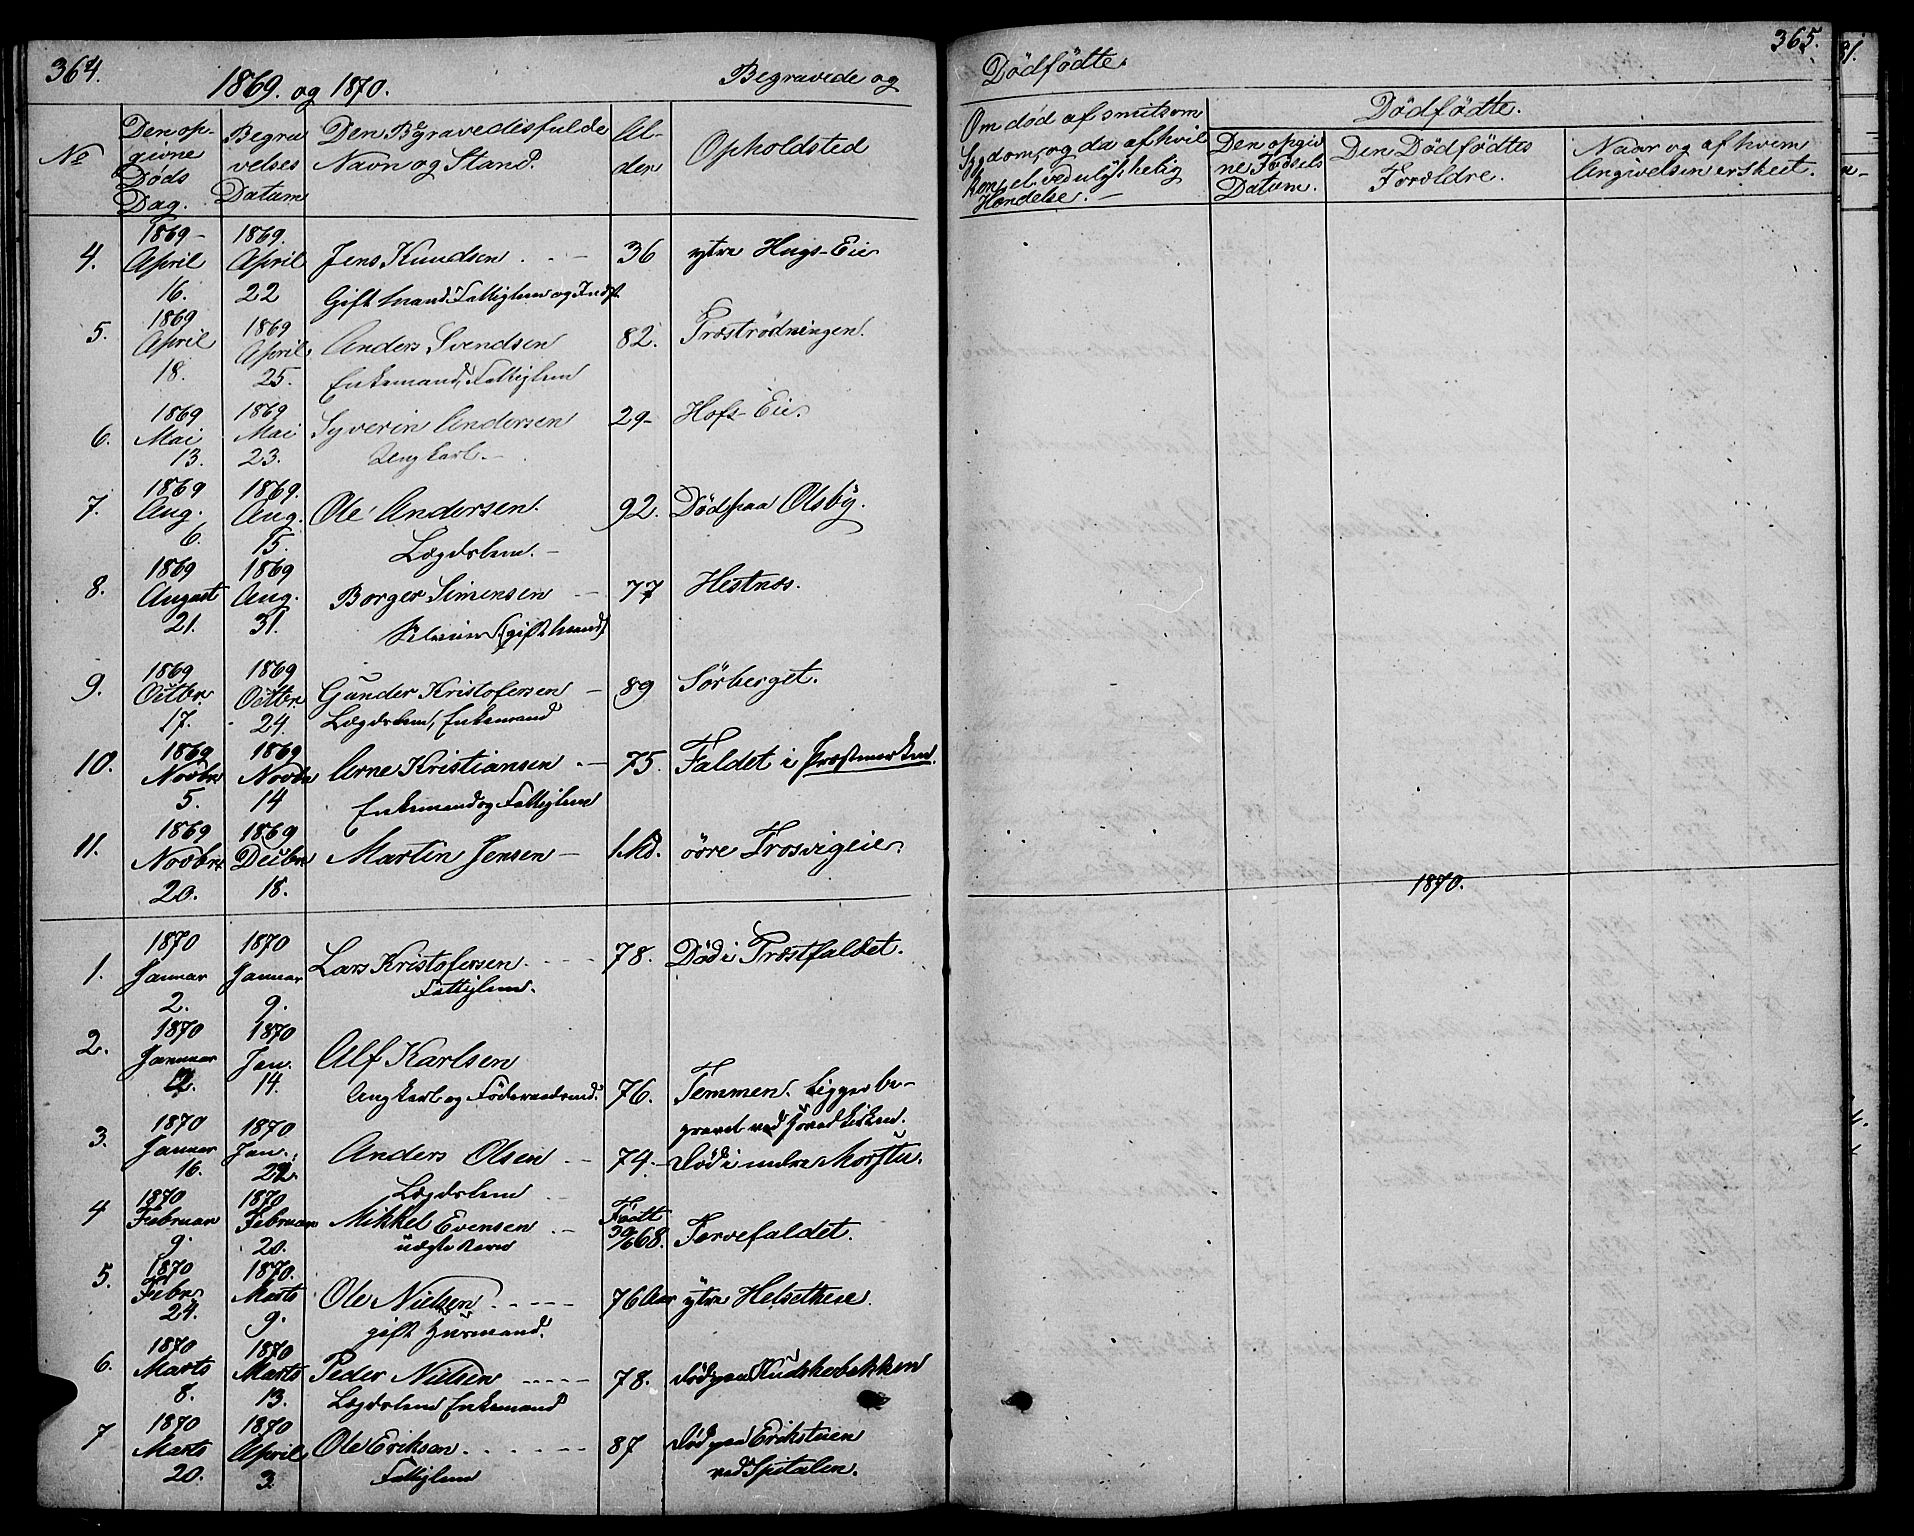 364.
1869. og 1870.
Begravede og
Nº
Den opgivne Døds Dag.
Begravelses Datum
Den Begravedes fulde Navn og Stand.
Alder
Opholdsted
4. 1869 April 16. 1869. April 22 Jens Knudsen 36 ytre Hugs-Eie
Gift Mand, Fattiglem og Indst
5. 1869 April 18. 1869 April 25. Anders Svendsen 82. Træströdningen.
Enkemand, Fattiglem
6. 1869 Mai 13. 1869 Mai 23. Syverin Andersen 29- Hofs-Eie.
Ungkarl.-
7. 1869 Aug. 6. 1869. Aug. 15. Ole Andersen. 92. Död paa Olsby.
Lægdslem.-
8. 1869 August 21. 1869 Aug. 31. Borger Simensen 77 Hestnæs.
(gift Mand)
9. 1869 Octbr. 17. 1869 Octbr. 24. Gunder Kristofersen 89 Sörberget.
Lægdslem, Enkemand
10. 1869 Novbr 5. 1869 Novbr 14 Arne Kristiansen 75. Faldet i Præstmarken.
Enkemand og Fattiglem
11. 1869 Novbr. 20. 1869 Decbr 18. Martin Jensen - 1 Md. övre Frosvigeie.
1. 1870 Januar 2. 1870 Januar 9. Lars Kristofersen 78. Död i Præstfaldet.
Fattiglem.
2. 1870 Januar 2. 1870 Jan. 14. Alf Karlsen
Ungkarl og Föderaadsmd. 76. Temmen. Ligger begravet ved Hovedkirken.
3. 1870 Januar 16. 1870 Jan. 22. Anders Olsen 74.- Död i indre Morstu.
Lægdslem
4 1870 Februar 9. 1870 Februar 20. Mikkel Evensen Födt 30/6 68. Tørvefaldet.
uægte Barn
5. 1870 Febr. 24. 1870. Marts 9. Ole Nielsen 76 Aar ytre Helsethese.
gift Husmand.
6. 1870 Marts 8. 1870 Marts 13. Peder Nielsen 78. Död paa Kudskebakken
Lægdslem Enkemand
7 1870 Marts 20. 1870 April 3. Ole Erikson 87 Död paa Erikstuen
Fattiglem ved Spitalen.
365.
Dödfödte.
Om död af smitsom Sygdom, og da af hvilken, el. ved ulykkelig Hændelse.-
Dödfödte.
Den opgivne Födsels Datum.
Den Dödfödtes Forældre.
Naar og af hvem Angivelsen er skeet.
1870.